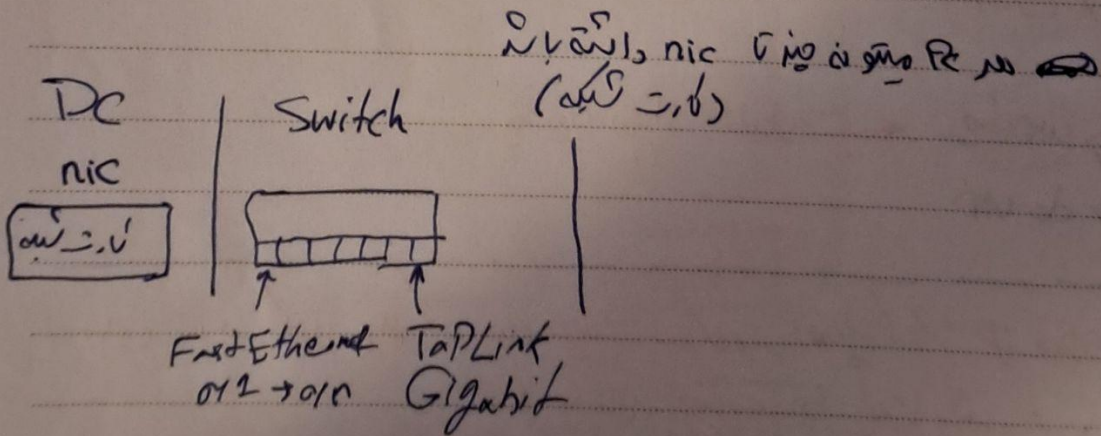 هر PC میتونه چند تا nic داشته باشد
(کارت شبکه)
DC
Switch
nic
کارت شبکه
FastEthernet
0/1 → 0/n
TaPLink
Gigabit